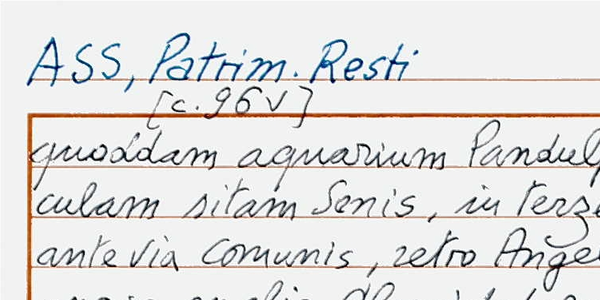 ASS, Patrim. Resti
[c. 96v]
quoddam aquarium Pandulf
culam sitam Senis, in Terze
ante via Comunis, retro Ange